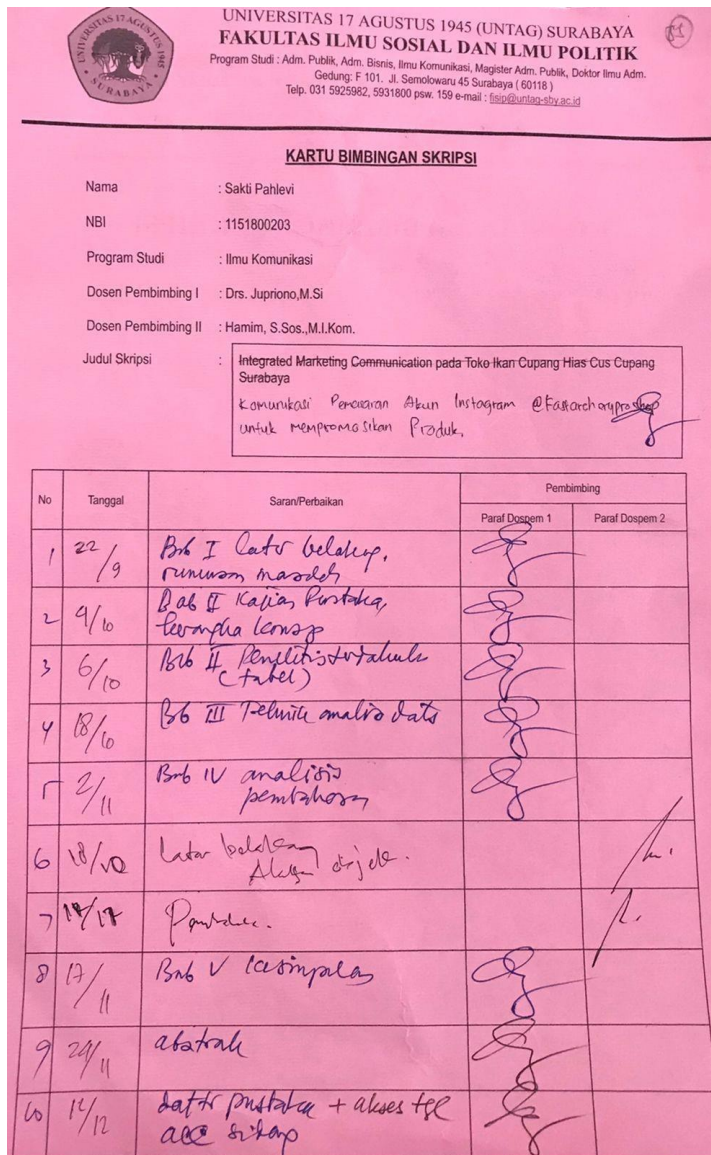 UNIVERSITAS 17 AGUSTUS 1945
SURABAYA
UNIVERSITAS 17 AGUSTUS 1945 (UNTAG) SURABAYA
FAKULTAS ILMU SOSIAL DAN ILMU POLITIK
Program Studi : Adm. Publik, Adm. Bisnis, Ilmu Komunikasi, Magister Adm. Publik, Doktor Ilmu Adm.
Gedung: F 101. Jl. Semolowaru 45 Surabaya ( 60118 )
Telp. 031 5925982, 5931800 psw. 159 e-mail : fisip@untag-sby.ac.id
KARTU BIMBINGAN SKRIPSI
Nama : Sakti Pahlevi
NBI : 1151800203
Program Studi : Ilmu Komunikasi
Dosen Pembimbing I : Drs. Jupriono,M.Si
Dosen Pembimbing II : Hamim, S.Sos.,M.I.Kom.
Judul Skripsi : Integrated Marketing Communication pada Toko Ikan Cupang Hias Cus Cupang
Surabaya
Komunikasi Pemasaran Akun Instagram @Fastarcheryproshop
untuk mempromosikan Produk.
No Tanggal Saran/Perbaikan Pembimbing
Paraf Dospem 1 Paraf Dospem 2
1 22/9 Bab I latar belakang,
rumusan masalah
2 4/10 Bab II Kajian Pustaka,
kerangka konsep
3 6/10 Bab II Penelitian terdahulu
(tabel)
4 18/10 Bab III Teknik analisis data
5 2/11 Bab IV analisis
pembahasan
6 18/10 Latar belakang
7
8 17/11 Bab V kesimpulan
9 24/11 abstrak
10 12/12 daftar pustaka + akses tgl
acc sidang